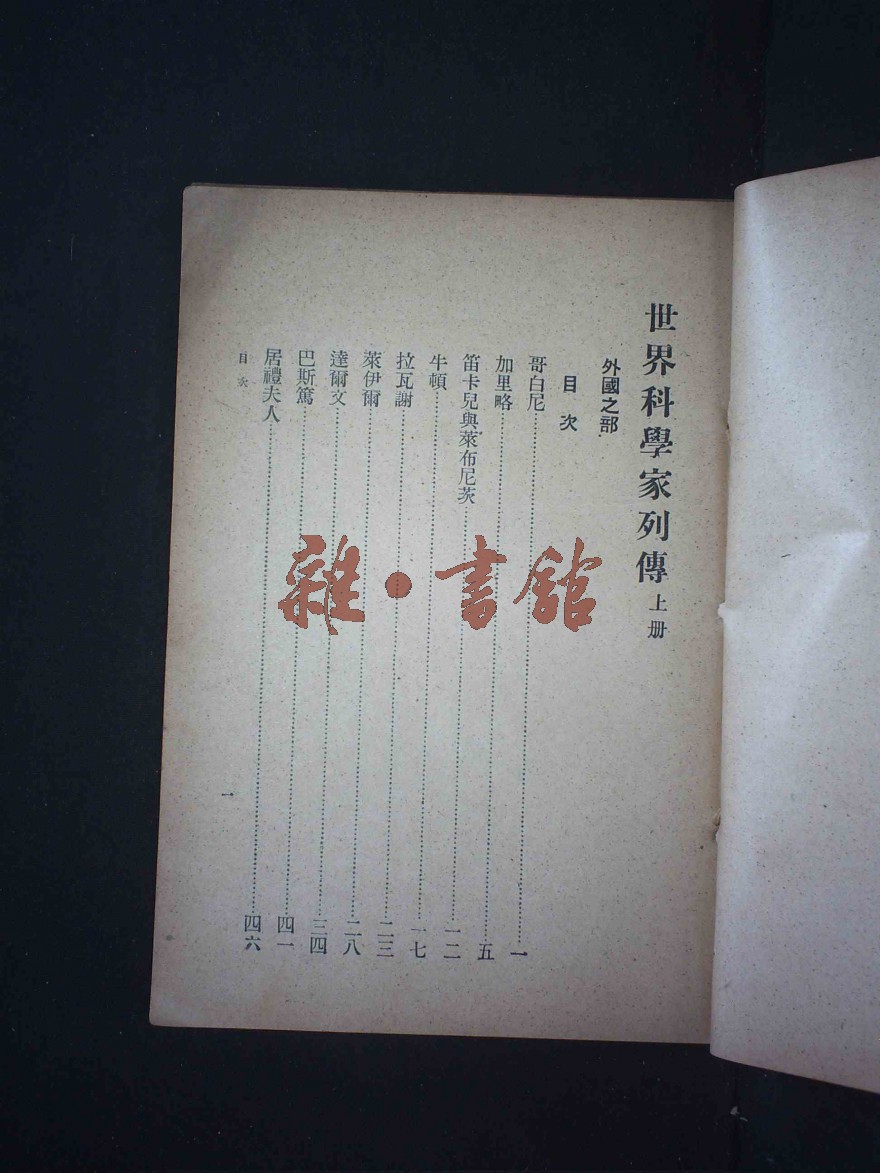 世界科學家列傳 上册
外國之部
目次
哥白尼……一
加里略……五
笛卡兒與萊布尼茨……一二
牛頓……一七
拉瓦謝……二三
萊伊爾……二八
達爾文……三四
巴斯篤……四一
居禮夫人……四六
目次
一
雜·書館